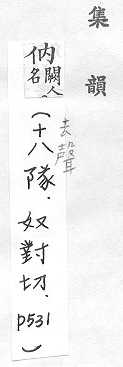 集韻
㕯闕
人名。
去聲
(十八隊.奴對切.p531)